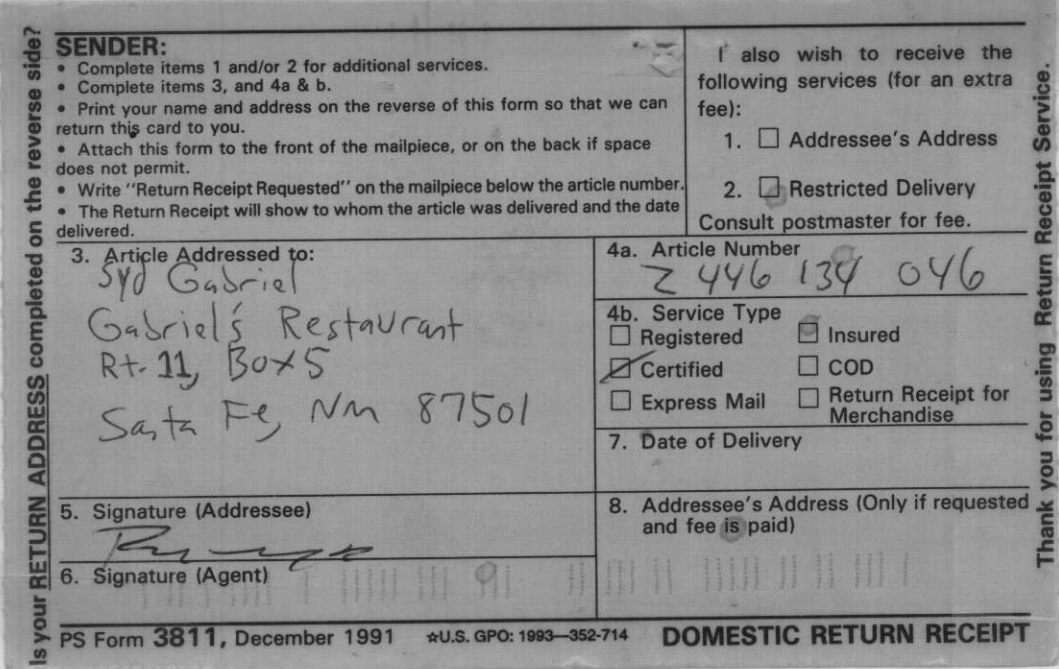 Is your RETURN ADDRESS completed on the reverse side?
SENDER:
• Complete items 1 and/or 2 for additional services.
• Complete items 3, and 4a & b.
• Print your name and address on the reverse of this form so that we can
return this card to you.
• Attach this form to the front of the mailpiece, or on the back if space
does not permit.
• Write "Return Receipt Requested" on the mailpiece below the article number.
• The Return Receipt will show to whom the article was delivered and the date
delivered.
I also wish to receive the
following services (for an extra
fee):
1. ☐ Addressee's Address
2. ☐ Restricted Delivery
Consult postmaster for fee.
3. Article Addressed to:
Syd Gabriel
Gabriel's Restaurant
Rt. 11, Box 5
Santa Fe, NM 87501
4a. Article Number
Z 446 134 046
4b. Service Type
☐ Registered ☐ Insured
☑ Certified ☐ COD
☐ Express Mail ☐ Return Receipt for
Merchandise
7. Date of Delivery
5. Signature (Addressee)
6. Signature (Agent)
8. Addressee's Address (Only if requested
and fee is paid)
PS Form 3811, December 1991 ☆U.S. GPO: 1993—352-714 DOMESTIC RETURN RECEIPT
Thank you for using Return Receipt Service.